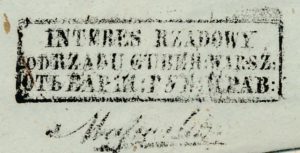 INTERES RZĄDOWY
od RZĄDU GUBER: WARSZ:
ОТЪ ВАРШ: ГУБ: ПРАВ: